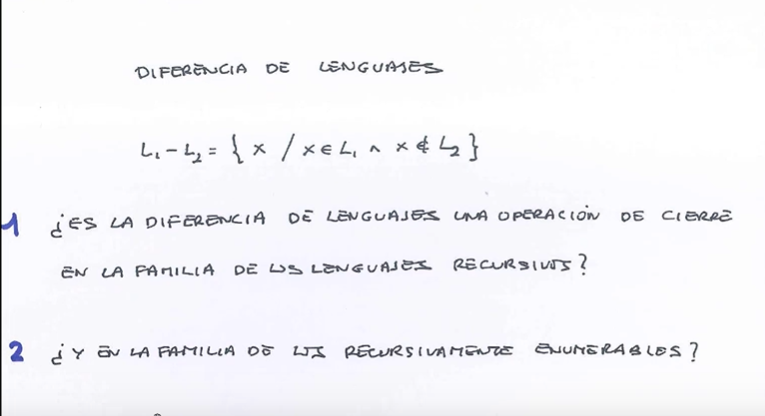 DIFERENCIA DE LENGUAJES
L₁ - L₂ = { x / x ∈ L₁ ∧ x ∉ L₂ }
1 ¿ES LA DIFERENCIA DE LENGUAJES UNA OPERACIÓN DE CIERRE
EN LA FAMILIA DE LOS LENGUAJES RECURSIVOS?
2 ¿Y EN LA FAMILIA DE LOS RECURSIVAMENTE ENUMERABLES?